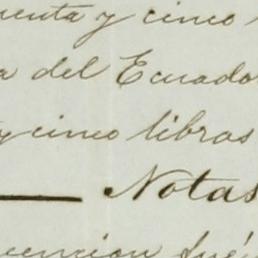 uenta y cinco
a del Ecuado
y cinco libras
Notas